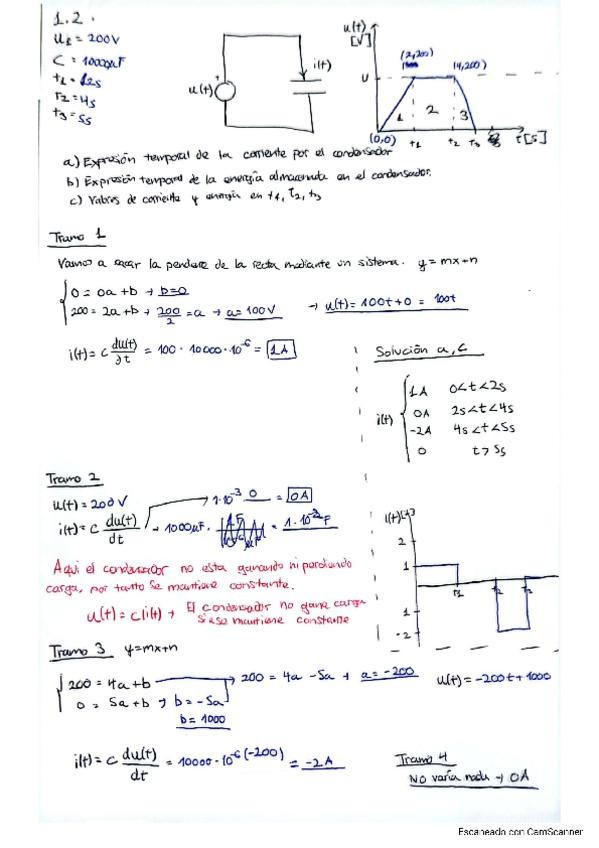 1.2.
U₂ = 200V
C = 10000µF
t₁ = 2s
t₂ = 4s
t₃ = 5s
u(t)
i(t)
u(t)
[V]
(2,200)
(4,200)
U
1
2
3
(0,0)
t₁
t₂
t₃
t[s]
a) Expresión temporal de la corriente por el condensador
b) Expresión temporal de la energía almacenada en el condensador.
c) Valores de corriente y energía en t₁, t₂, t₃
Tramo 1
Vamos a sacar la pendiente de la recta mediante un sistema. y=mx+n
0 = 0a + b → b=0
200 = 2a + b → 200/2 = a → a=100V
→ u(t)= 100t+0 = 100t
i(t)= C du(t)/dt = 100 · 10000·10⁻⁶ = 1A
Solución a, c
i(t)
1A 0<t<2s
0A 2s<t<4s
-2A 4s<t<5s
0 t>5s
Tramo 2
u(t)=200V
i(t)= C du(t)/dt
1·10⁻³ 0 = 0A
→ 1000µF ·
= 1·10⁻³F
Aqui el condensador no esta ganando ni perdiendo
carga, por tanto se mantiene constante.
u(t) = C|i(t) → El condensador no gana carga
si se mantiene constante
i(t)
2
1
1
-2
t₁
t₂
t₃
Tramo 3 y=mx+n
200 = 4a+b → 200 = 4a -5a → a=-200
0 = 5a+b → b=-5a
b=1000
u(t)= -200t+1000
i(t)= C du(t)/dt = 10000·10⁻⁶(-200) = -2A
Tramo 4
No varía nada → 0A
Escaneado con CamScanner